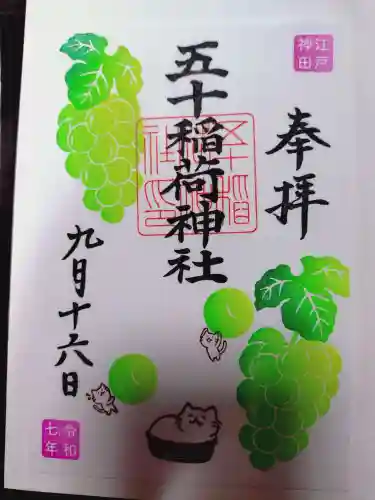 江戸
神田
奉拝
五十稲荷神社
九月十六日
令和
七年